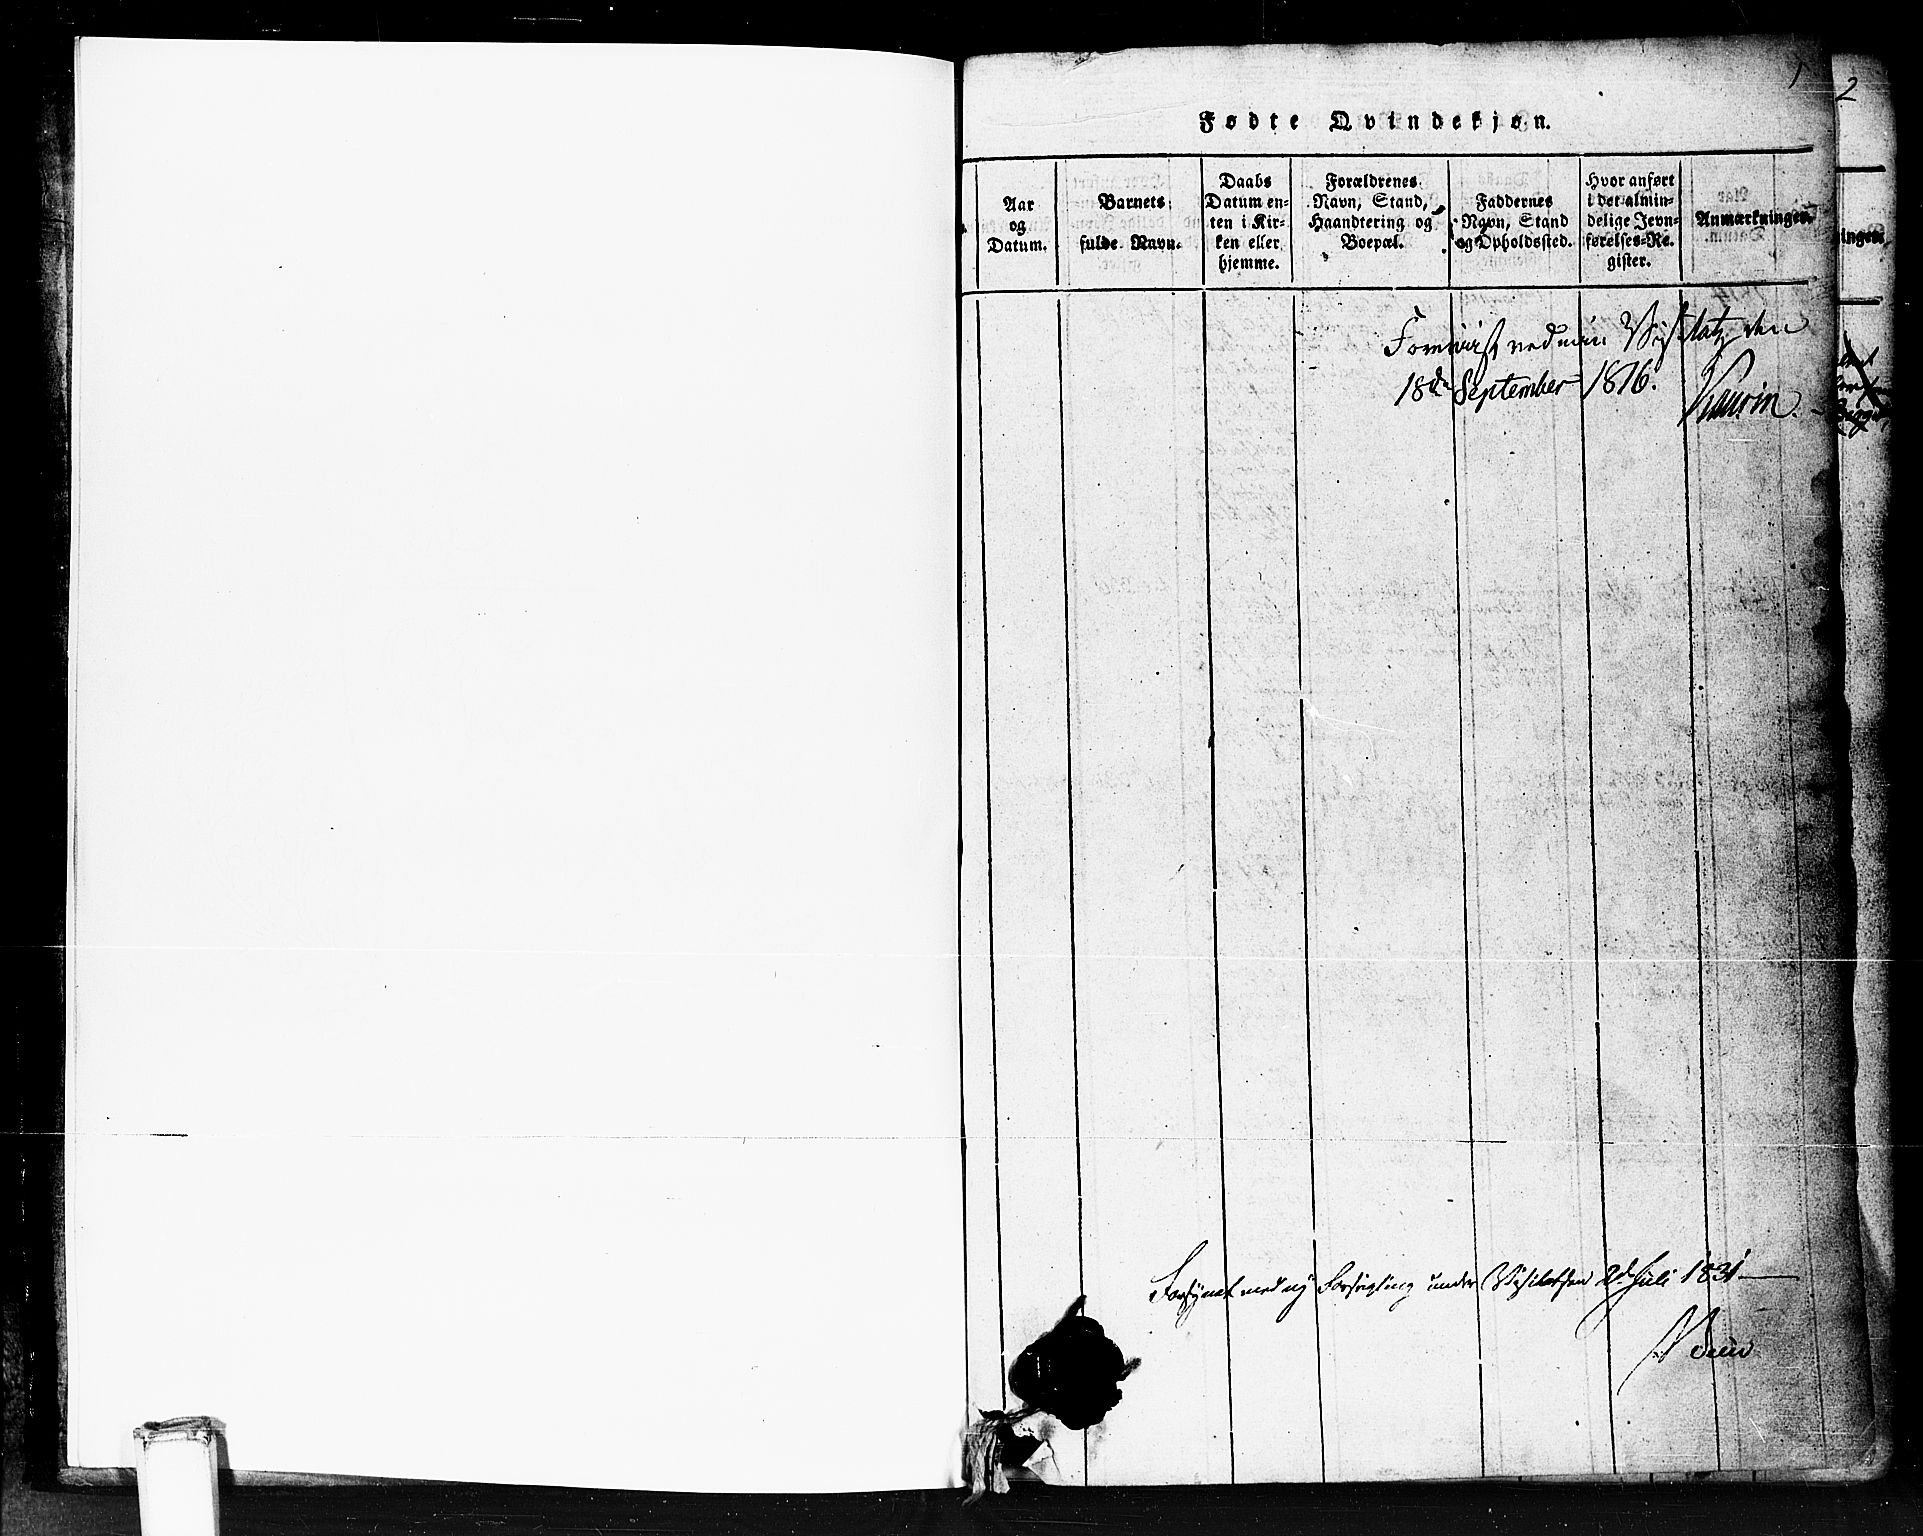 1
2
Fødte Qvindekjøn.
Aar
og
Datum.
Barnets
fulde Navn.
Daabs
Datum en-
ten i Kir-
ken eller
hjemme.
Forældrenes
Navn, Stand,
Haandtering og
Boepæl.
Faddernes
Navn, Stand
og Opholdssted.
Hvor anført
i det almin-
delige Jevn-
førelses-Re-
gister.
Anmærkninger.
ninger.
Foreviist ved min Visitatz den
18de September 1816.
Kaurin.
Forsynet med ny Forsegling under Visitatsen 2d Juli 1831